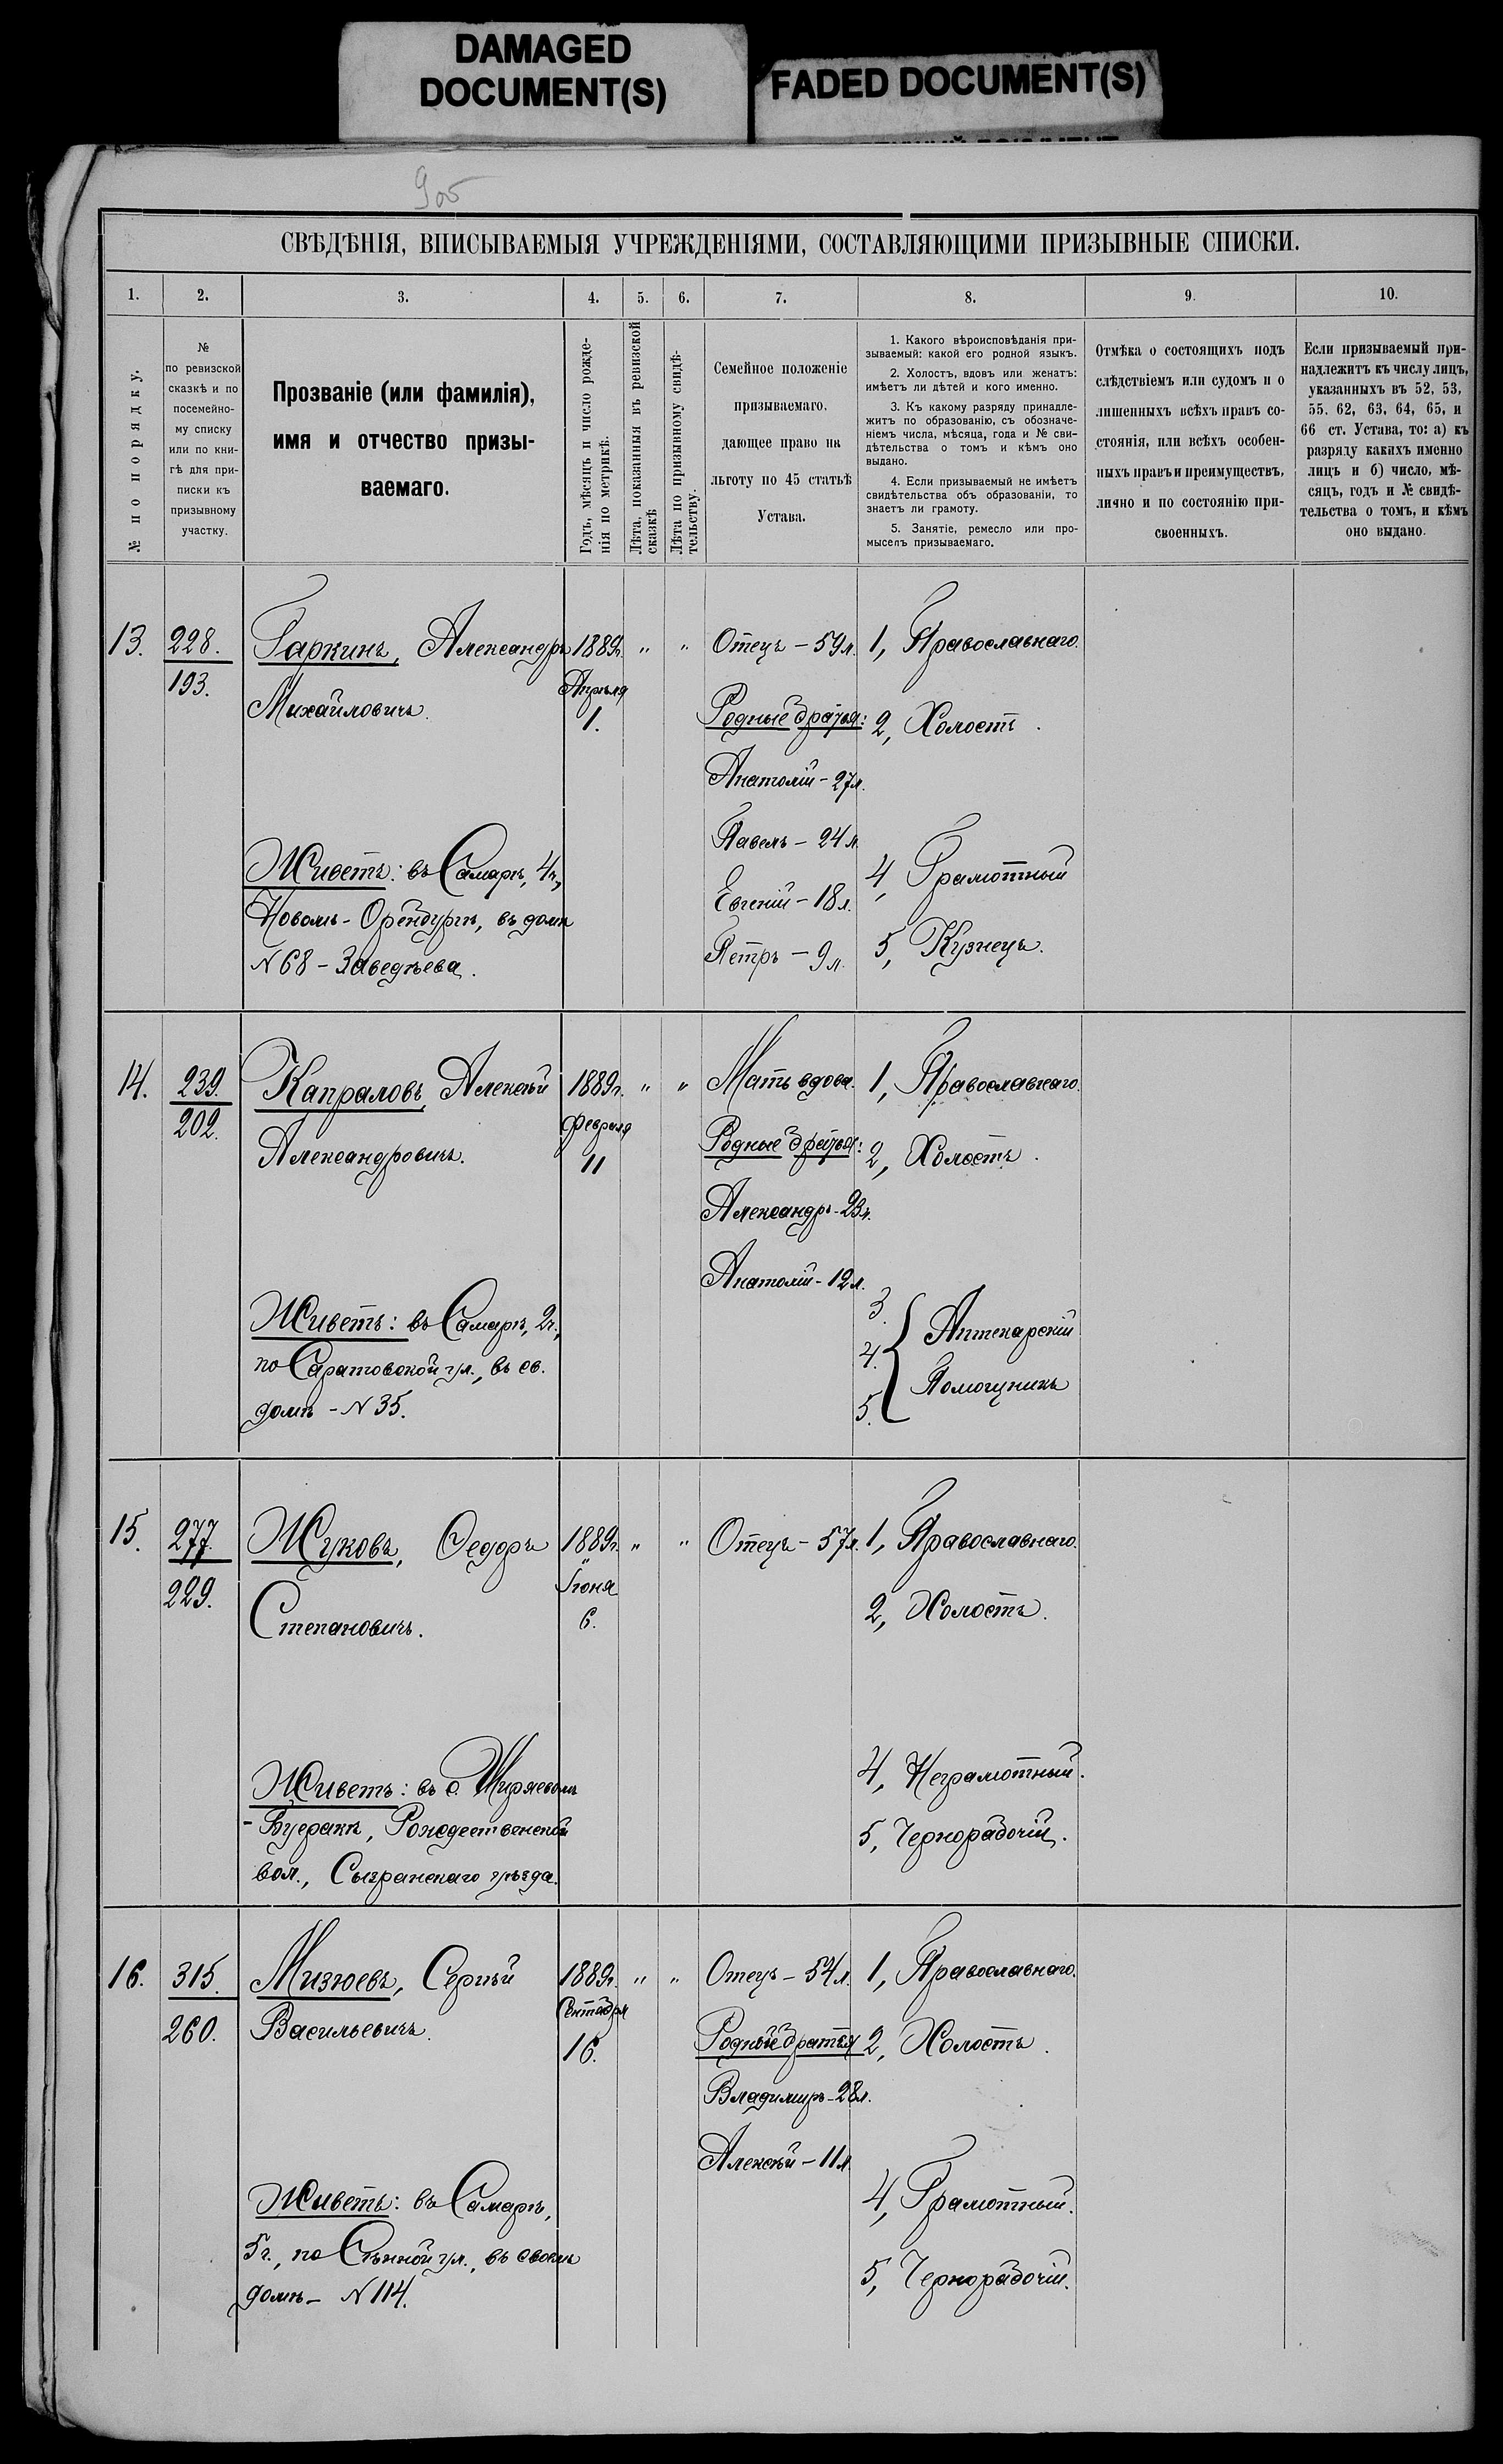 DAMAGED
DOCUMENT(S)
FADED DOCUMENT(S)
905
СВѢДѢНІЯ, ВПИСЫВАЕМЫЯ УЧРЕЖДЕНІЯМИ, СОСТАВЛЯЮЩИМИ ПРИЗЫВНЫЕ СПИСКИ.
1.
2.
3.
4.
5.
6.
7.
8.
9.
10.
№ по порядку.
№
по ревизской
сказкѣ и по
посемейно-
му списку
или по кни-
гѣ для при-
писки къ
призывному
участку.
Прозваніе (или фамилія),
имя и отчество призы-
ваемаго.
Годъ, мѣсяцъ и число рожде-
нія по метрикѣ.
Лѣта, показанныя въ ревизской
сказкѣ
Лѣта по призывному свидѣ-
тельству.
Семейное положеніе
призываемаго,
дающее право на
льготу по 45 статьѣ
Устава.
1. Какого вѣроисповѣданія при-
зываемый: какой его родной языкъ.
2. Холостъ, вдовъ или женатъ:
имѣетъ ли дѣтей и кого именно.
3. Къ какому разряду принадле-
житъ по образованію, съ обозначе-
ніемъ числа, мѣсяца, года и № сви-
дѣтельства о томъ и кѣмъ оно
выдано.
4. Если призываемый не имѣетъ
свидѣтельства объ образованіи, то
знаетъ ли грамоту.
5. Занятіе, ремесло или про-
мыселъ призываемаго.
Отмѣка о состоящихъ подъ
слѣдствіемъ или судомъ и о
лишенныхъ всѣхъ правъ со-
стоянія, или всѣхъ особен-
ныхъ правъ и преимуществъ,
лично и по состоянію при-
своенныхъ.
Если призываемый при-
надлежитъ къ числу лицъ,
указанныхъ въ 52, 53,
55, 62, 63, 64, 65, и
66 ст. Устава, то: а) къ
разряду какихъ именно
лицъ и б) число, мѣ-
сяцъ, годъ и № свидѣ-
тельства о томъ, и кѣмъ
оно выдано.
13.
228.
193.
Гаркинъ, Александръ
Михайловичъ.
Живетъ: въ Самарѣ, 4ч,
Новомъ-Оренбургѣ, въ домѣ
N 68 -
1889г.
Апрѣля
1.
" "
Отецъ - 59л.
Родные братья:
Анатолій - 27л.
Павелъ - 24л.
Евгеній - 18л.
Петръ - 9л.
1, Православнаго.
2, Холостъ.
4, Грамотный
5, Кузнецъ.
14.
239.
202.
Капраловъ, Алексѣй
Александровичъ.
Живетъ: въ Самарѣ, 2ч.,
по Саратовской ул., въ св.
домѣ - N 35.
1889г.
Февраля
11
" "
Мать вдова.
Родные братья:
Александръ - 23л.
Анатолій - 12л.
1, Православнаго.
2, Холостъ.
3.
4.
5.
Аптекарскій
Помощникъ
15.
277.
229.
Жуковъ, Ѳедоръ
Степановичъ.
Живетъ: въ с. Ширяевомъ
-Буеракѣ, Рождественской
вол., Сызранскаго уѣзда.
1889г.
Іюня
6.
" "
Отецъ - 57л.
1, Православнаго.
2, Холостъ.
4, Неграмотный.
5, Чернорабочій.
16.
315.
260.
Мизюевъ, Сергѣй
Васильевичъ.
Живетъ: въ Самарѣ,
5ч., по Сѣнной ул., въ своемъ
домѣ - N 114.
1889г.
Сентября
16.
" "
Отецъ - 54л.
Родные братья
Владимиръ - 28л.
Алексѣй - 11л.
1, Православнаго.
2, Холостъ.
4, Грамотный.
5, Чернорабочій.